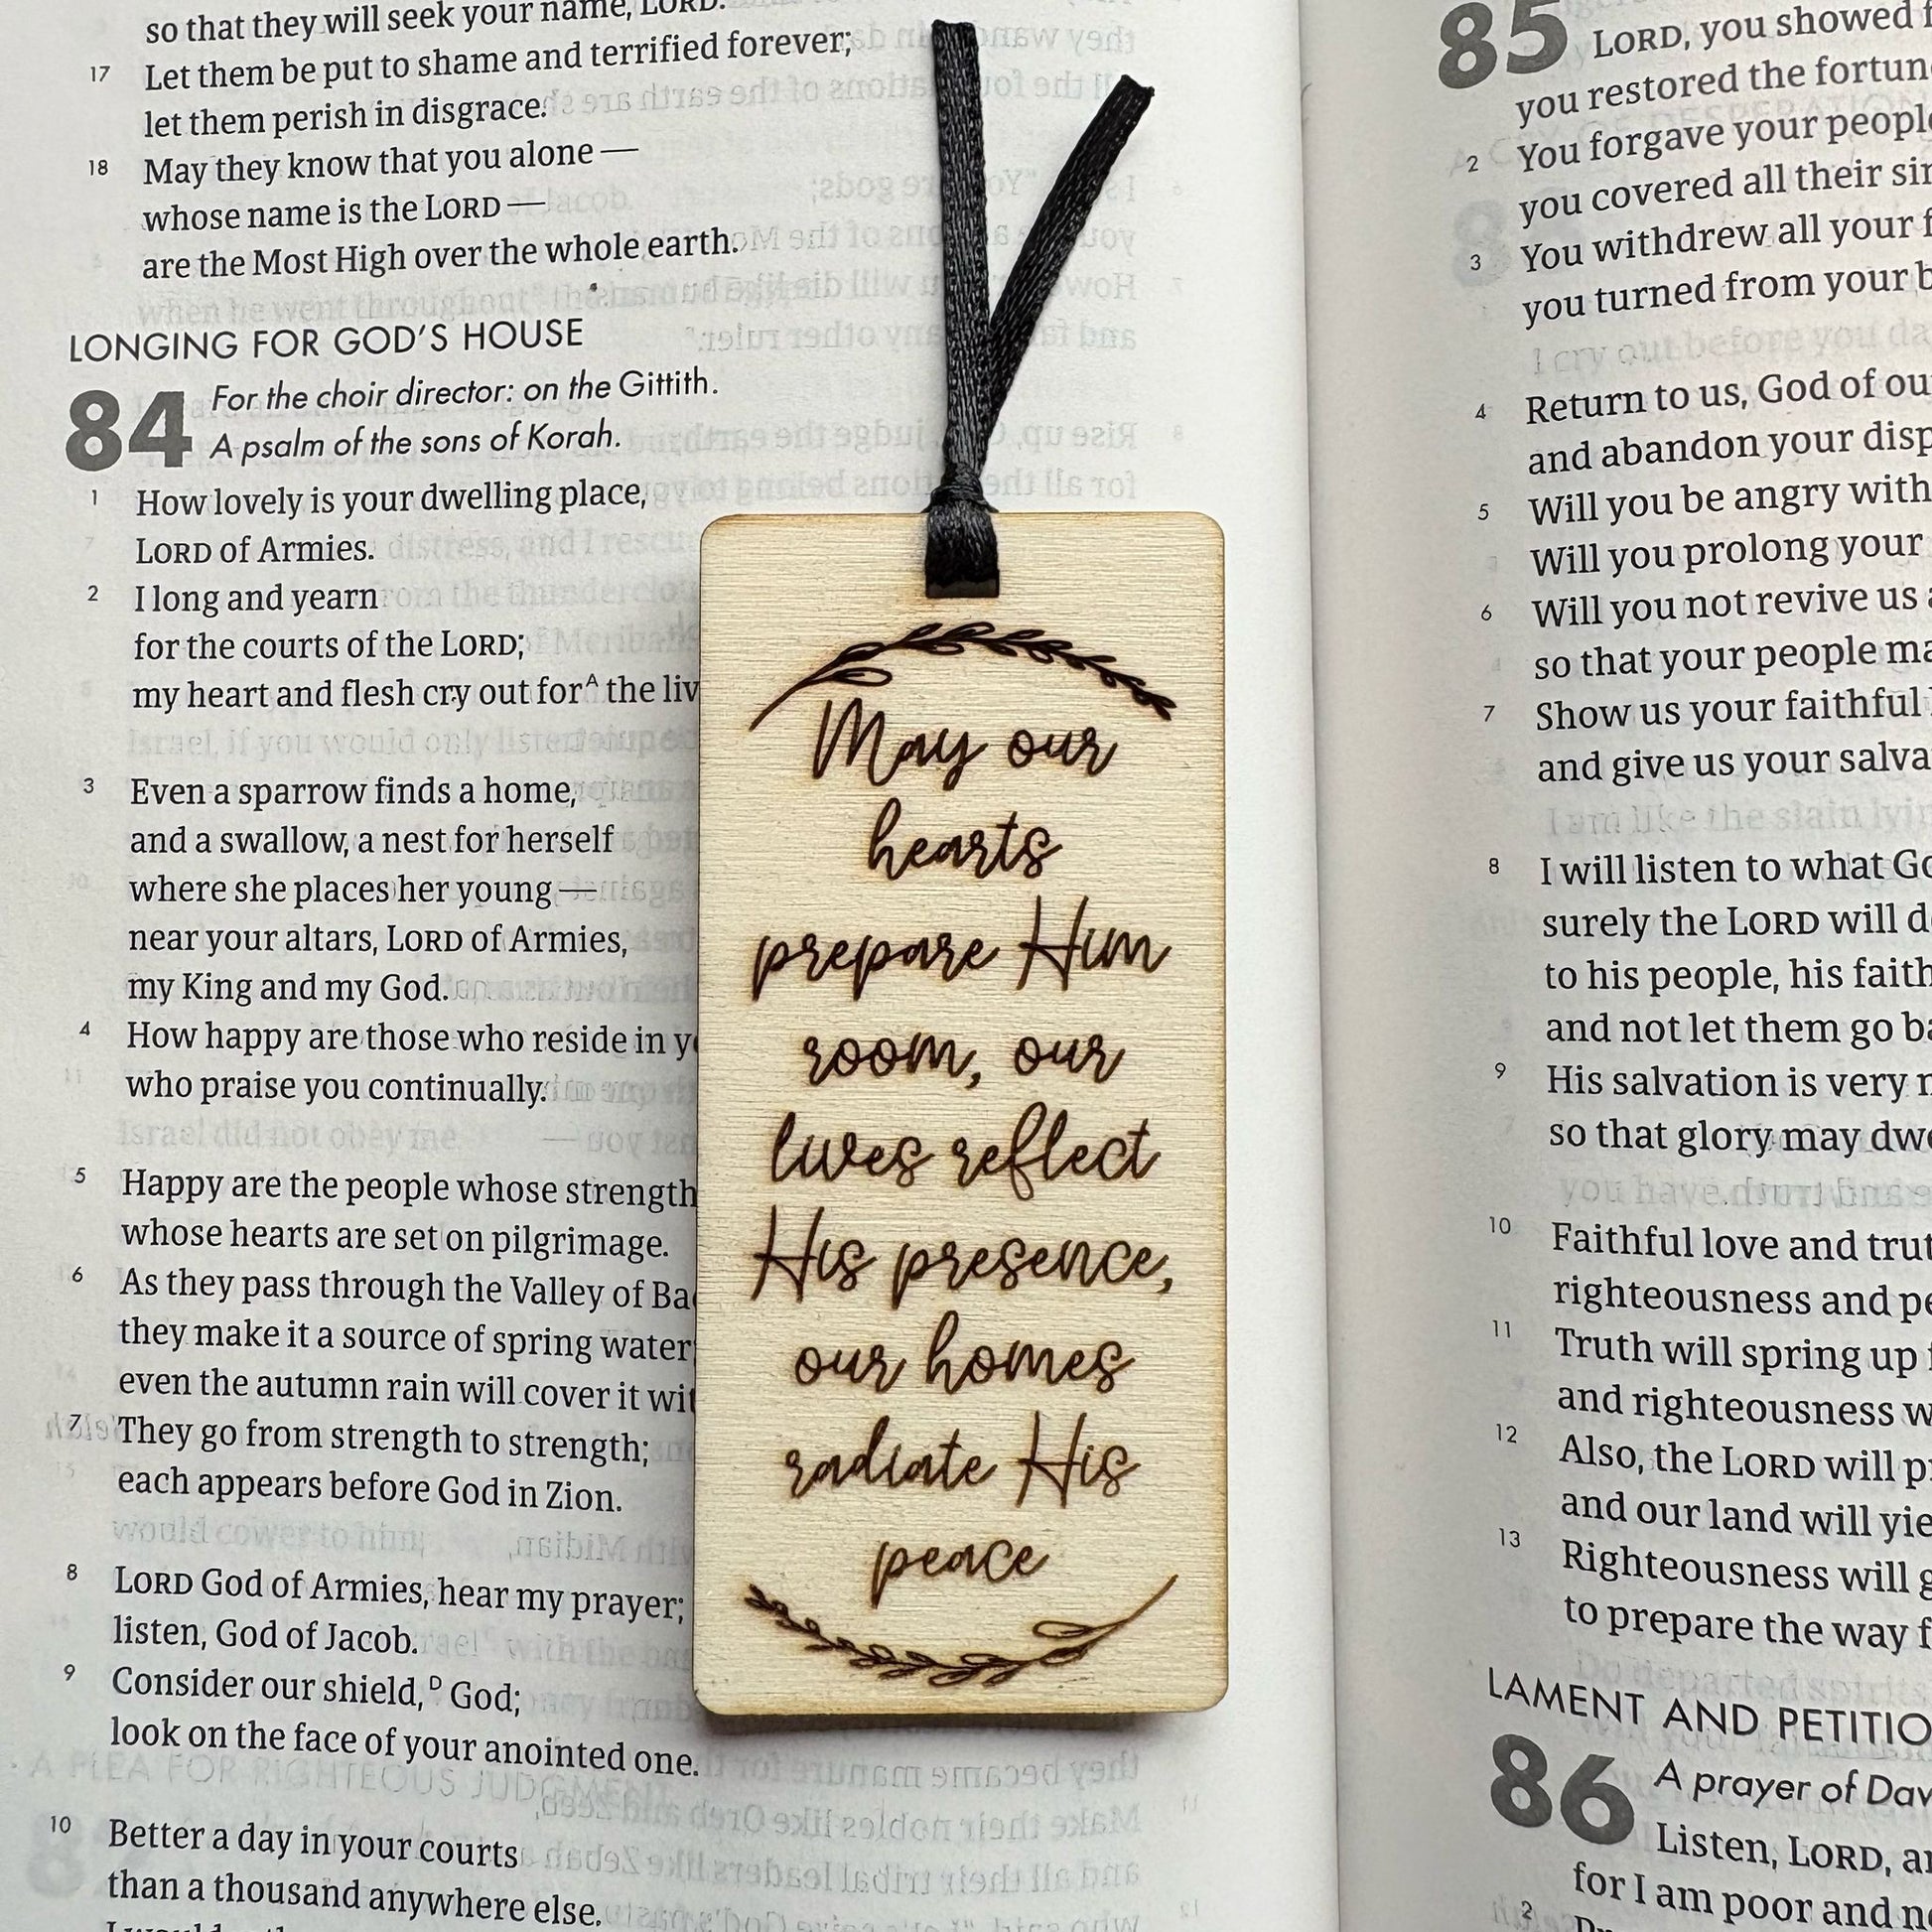 so that they will seek your name, LORD.
17 Let them be put to shame and terrified forever;
let them perish in disgrace.
18 May they know that you alone —
whose name is the LORD —
are the Most High over the whole earth.
LONGING FOR GOD'S HOUSE
84 For the choir director: on the Gittith.
A psalm of the sons of Korah.
1 How lovely is your dwelling place,
LORD of Armies.
2 I long and yearn
for the courts of the LORD;
my heart and flesh cry out for^A the liv
3 Even a sparrow finds a home,
and a swallow, a nest for herself
where she places her young —
near your altars, LORD of Armies,
my King and my God.
4 How happy are those who reside in
who praise you continually.
5 Happy are the people whose strength
whose hearts are set on pilgrimage.
6 As they pass through the Valley of Ba
they make it a source of spring water
even the autumn rain will cover it wit
7 They go from strength to strength;
each appears before God in Zion.
8 LORD God of Armies, hear my prayer;
listen, God of Jacob.
9 Consider our shield,^D God;
look on the face of your anointed one.
10 Better a day in your courts
than a thousand anywhere else.
May our
hearts
prepare Him
room, our
lives reflect
His presence,
our homes
radiate His
peace
85 LORD, you showed
you restored the fortun
2 You forgave your people
you covered all their sin
3 You withdrew all your
you turned from your
4 Return to us, God of ou
and abandon your disp
5 Will you be angry with
Will you prolong your
6 Will you not revive us
so that your people ma
7 Show us your faithful
and give us your salva
8 I will listen to what Go
surely the LORD will
to his people, his faith
and not let them go ba
9 His salvation is very
so that glory may dwe
10 Faithful love and trut
righteousness and pe
11 Truth will spring up
and righteousness w
12 Also, the LORD will
and our land will yie
13 Righteousness will
to prepare the way
LAMENT AND PETITIO
86 A prayer of Dav
Listen, LORD,
for I am poor and
2